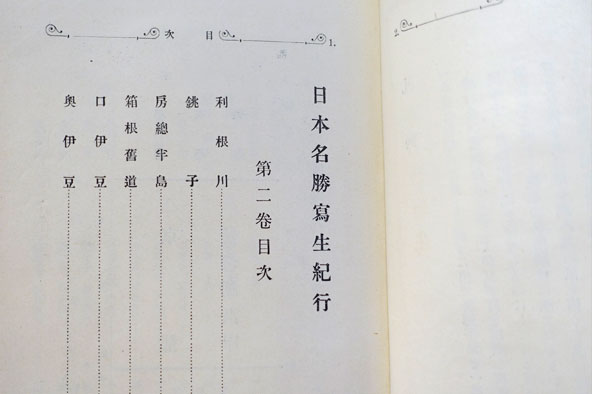 目次
1.
2
日本名勝寫生紀行
第二卷目次
利根川
銚子
房總半島
箱根舊道
口伊豆
奥伊豆